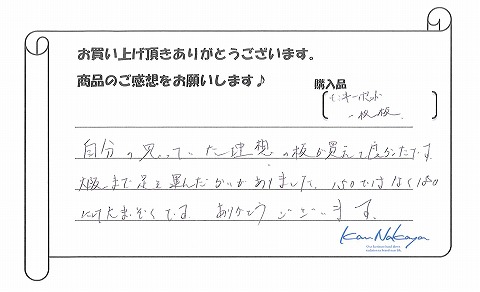 お買い上げ頂きありがとうございます。
商品のご感想をお願いします♪
購入品
一枚板
自分の思っていた理想の板が買えて良かったです。
大阪まで足を運んだかいがありました。150ではなく180
にして大まんぞくです。ありがとうございます。
KanNakaya